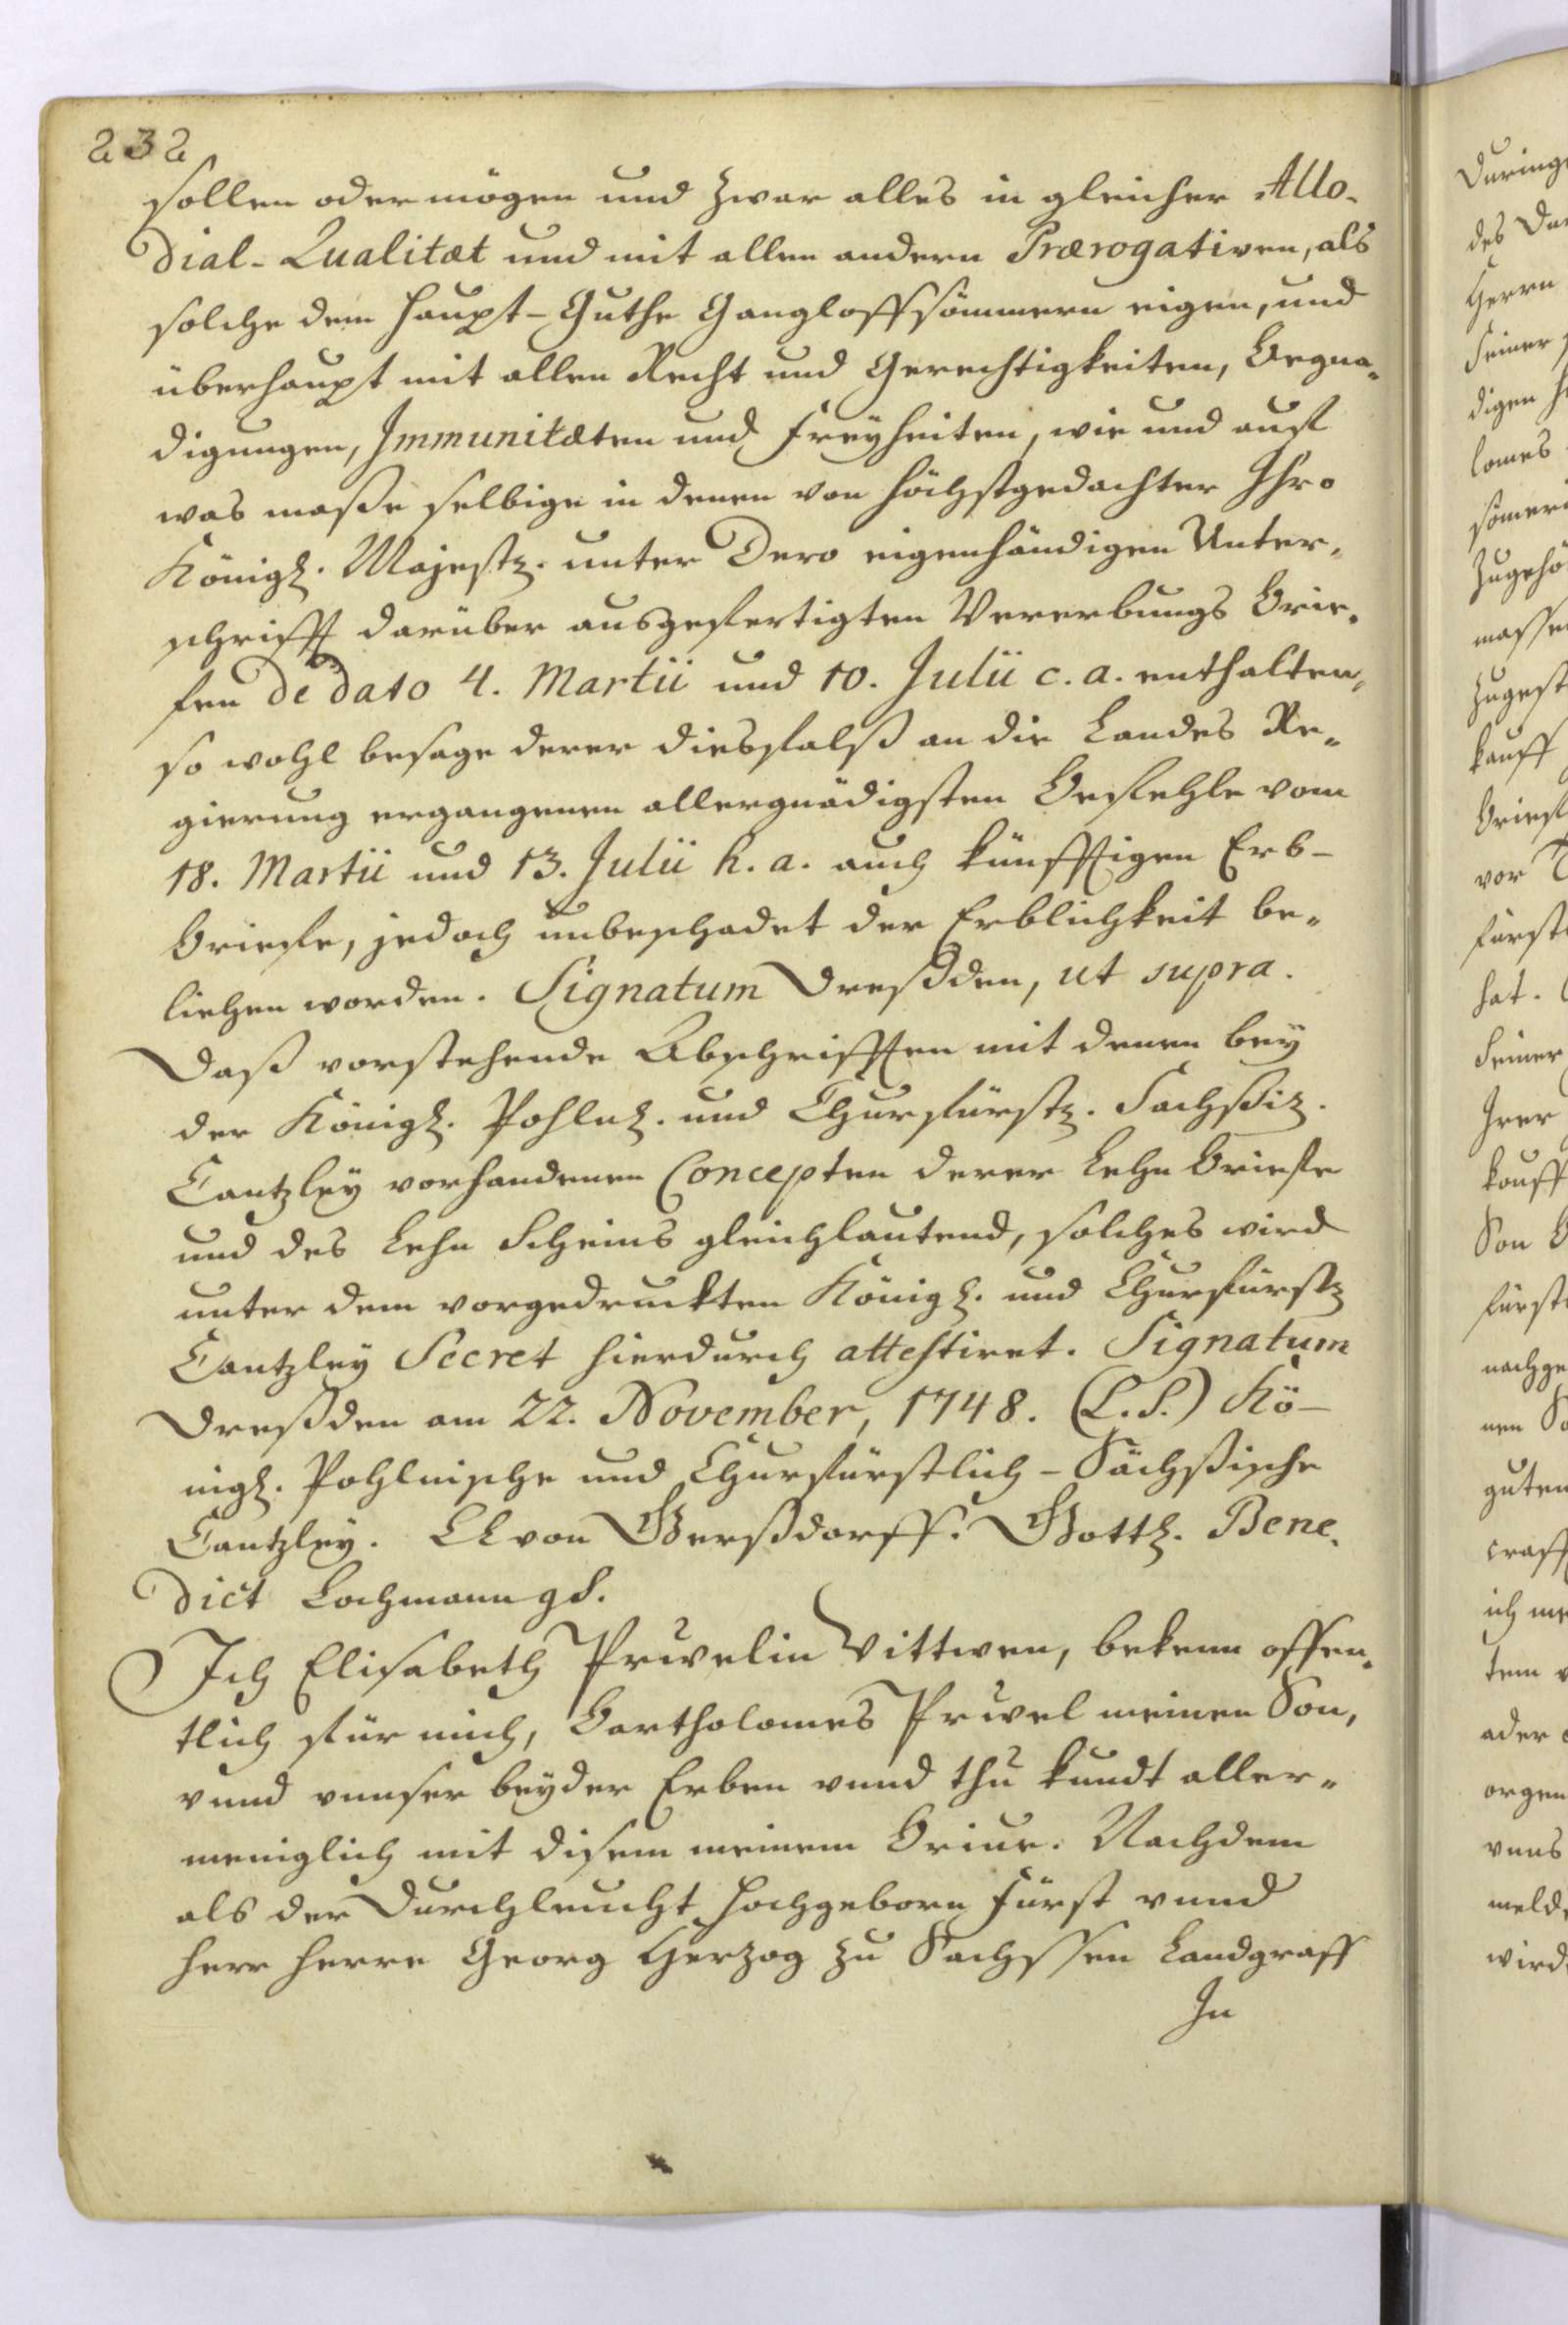 232
sollen oder mögen und zwar alles in gleicher Allo-
dial-Qualitæt und mit allen andern Prærogativen, als
solche dem Haupt-Guthe Gangloffsömmern eigen, und
überhaupt mit allen Recht und Gerechtigkeiten, Begna-
digungen, Immunitæten und Freyheiten, wie und auf
was maße selbige in denen von höchstgedachter Ihro
Königl. Majestt. unter Dero eigenhändigen Unter-
schrifft darüber ausgefertigten Vererbungs Brie-
fen de dato 4. Martii und 10. Julii c. a. enthalten,
so wohl besage derer diesfalß an die Landes Re-
gierung ergangenen allergnädigsten Befehle vom
18. Martii und 13. Julii h. a. auch künfftigen Erb-
Briefe, jedoch unbeschadet der Erblichkeit be-
liehen worden. Signatum Dreßden, ut supra.
Daß vorstehende Abschrifften mit denen bey
der Königl. Pohln. und Churfürstl. Sächßis.
Cantzley vorhandenen Concepten derer Lehn Briefe
und des Lehn Scheins gleichlautend, solches wird
unter dem vorgedruckten Königl. und Churfürstl
Cantzley Secret hierdurch attestiret. Signatum
Dreßden am 22. November, 1748. (L.S.) Kö-
nigl. Pohlnische und Churfürstlich-Sächßische
Cantzley. von Gerßdorff. Gottl. Bene-
dict Lochmann gS.
Ich Elisabeth Pruvelin Vittwen, bekenn offen-
tlich für mich, Bartholomes Pruvel meinen Son,
vnnd vnnser beyder Erben vnnd thu kundt aller-
meniglich mit disem meinem Briue. Nachdem
als der Durchleucht Hochgeborn Fürst vnnd
Herr Herre Georg Herzog zu Sachssen Landgraff
In
During
des
Herrn
Seiner
digen
lomes
sömeri
Zugehö
massen
Zugest
kauff
Brief
vor
Fürst
hat.
Seiner
Irer
kouff
Son
Fürst
nachge
nen
guten
craff
ich me
tem
ader
orgen
vnns
meld
wird